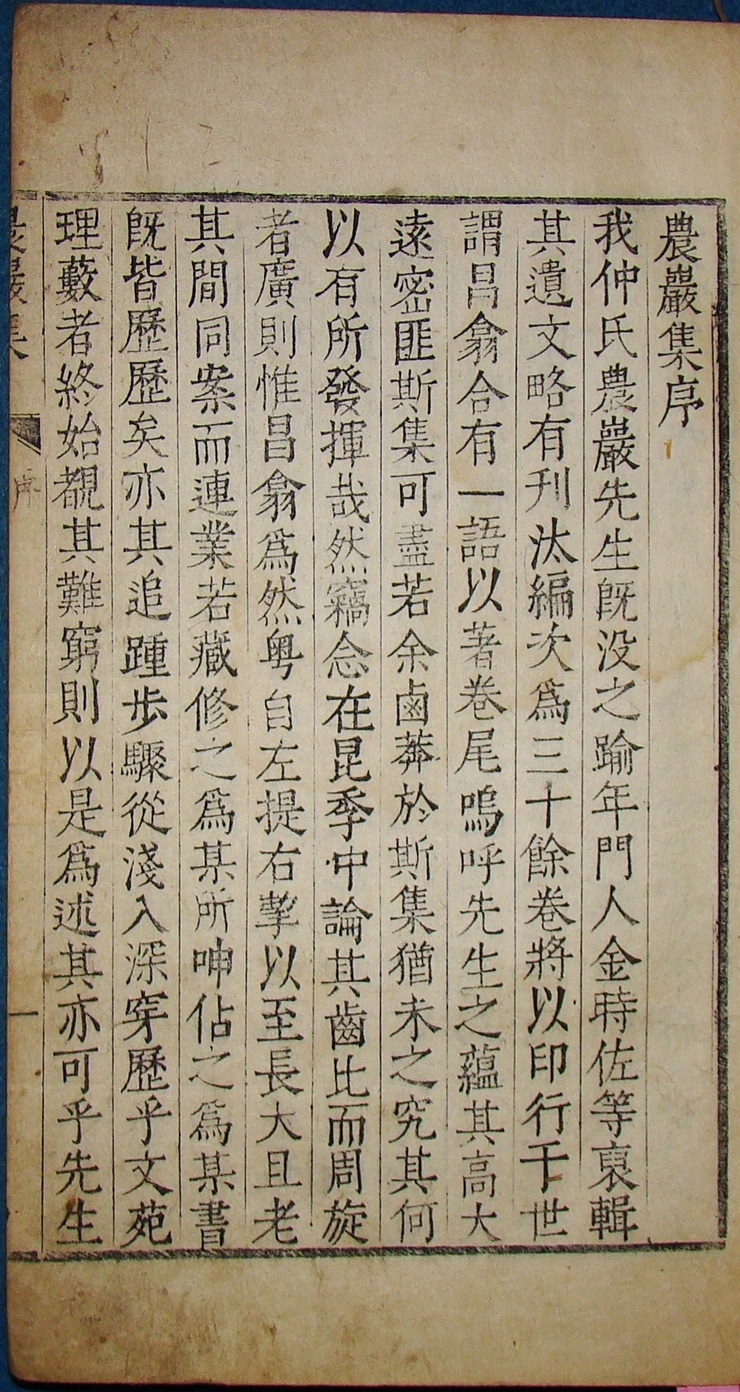 農巖集序
我仲氏農巖先生旣没之踰年門人金時佐等裒輯
其遺文略有刊汰編次爲三十餘卷將以印行于世
謂昌翕合有一語以著卷尾嗚呼先生之蘊其高大
遠密匪斯集可盡若余鹵莽於斯集猶未之究其何
以有所發揮哉然竊念在昆季中論其齒比而周旋
者廣則惟昌翕爲然粤自左提右挈以至長大且老
其間同案而連業若藏修之爲某所呻佔之爲某書
旣皆歷歷矣亦其追踵步驟從淺入深穿歷乎文苑
理藪者終始覩其難窮則以是爲述其亦可乎先生
農巖集
序
一